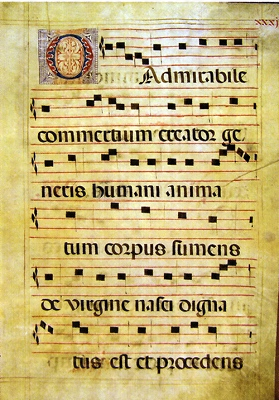 xxxj
O Admirabile
commertium creator ge
neris humani anima
tum corpus sumens
de virgine nasci digna
tus est et procedens